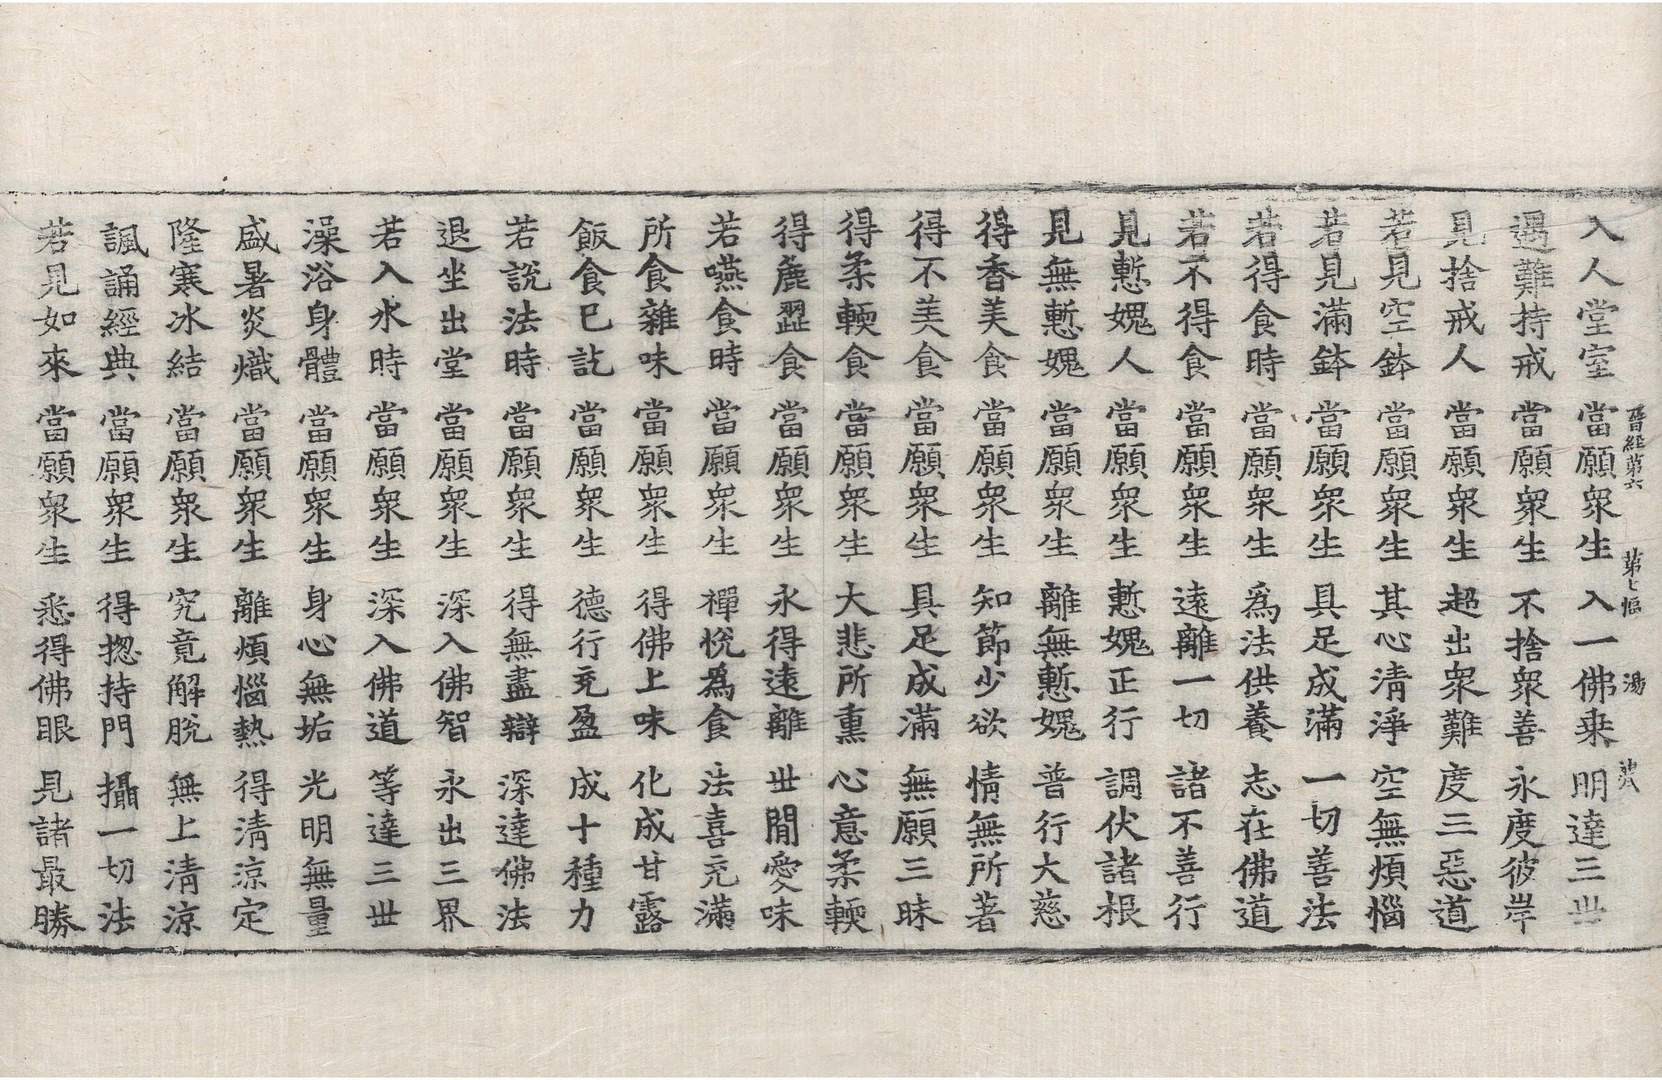 晉經第六 第七幅 湯 沖
入人堂室 當願衆生 入一佛乘 明達三世
遇難持戒 當願衆生 不捨衆善 永度彼岸
見捨戒人 當願衆生 超出衆難 度三惡道
若見空鉢 當願衆生 其心清淨 空無煩惱
若見滿鉢 當願衆生 具足成滿 一切善法
若得食時 當願衆生 爲法供養 志在佛道
若不得食 當願衆生 遠離一切 諸不善行
見慙媿人 當願衆生 慙媿正行 調伏諸根
見無慙媿 當願衆生 離無慙媿 普行大慈
得香美食 當願衆生 知節少欲 情無所著
得不美食 當願衆生 具足成滿 無願三昧
得柔輭食 當願衆生 大悲所熏 心意柔輭
得麁澀食 當願衆生 永得遠離 世間愛味
若嚥食時 當願衆生 禪悅爲食 法喜充滿
所食雜味 當願衆生 得佛上味 化成甘露
飯食已訖 當願衆生 德行充盈 成十種力
若說法時 當願衆生 得無盡辯 深達佛法
退坐出堂 當願衆生 深入佛智 永出三界
若入水時 當願衆生 深入佛道 等達三世
澡浴身體 當願衆生 身心無垢 光明無量
盛暑炎熾 當願衆生 離煩惱熱 得淸涼定
隆寒冰結 當願衆生 究竟解脫 無上淸涼
諷誦經典 當願衆生 得揔持門 攝一切法
若見如來 當願衆生 悉得佛眼 見諸最勝